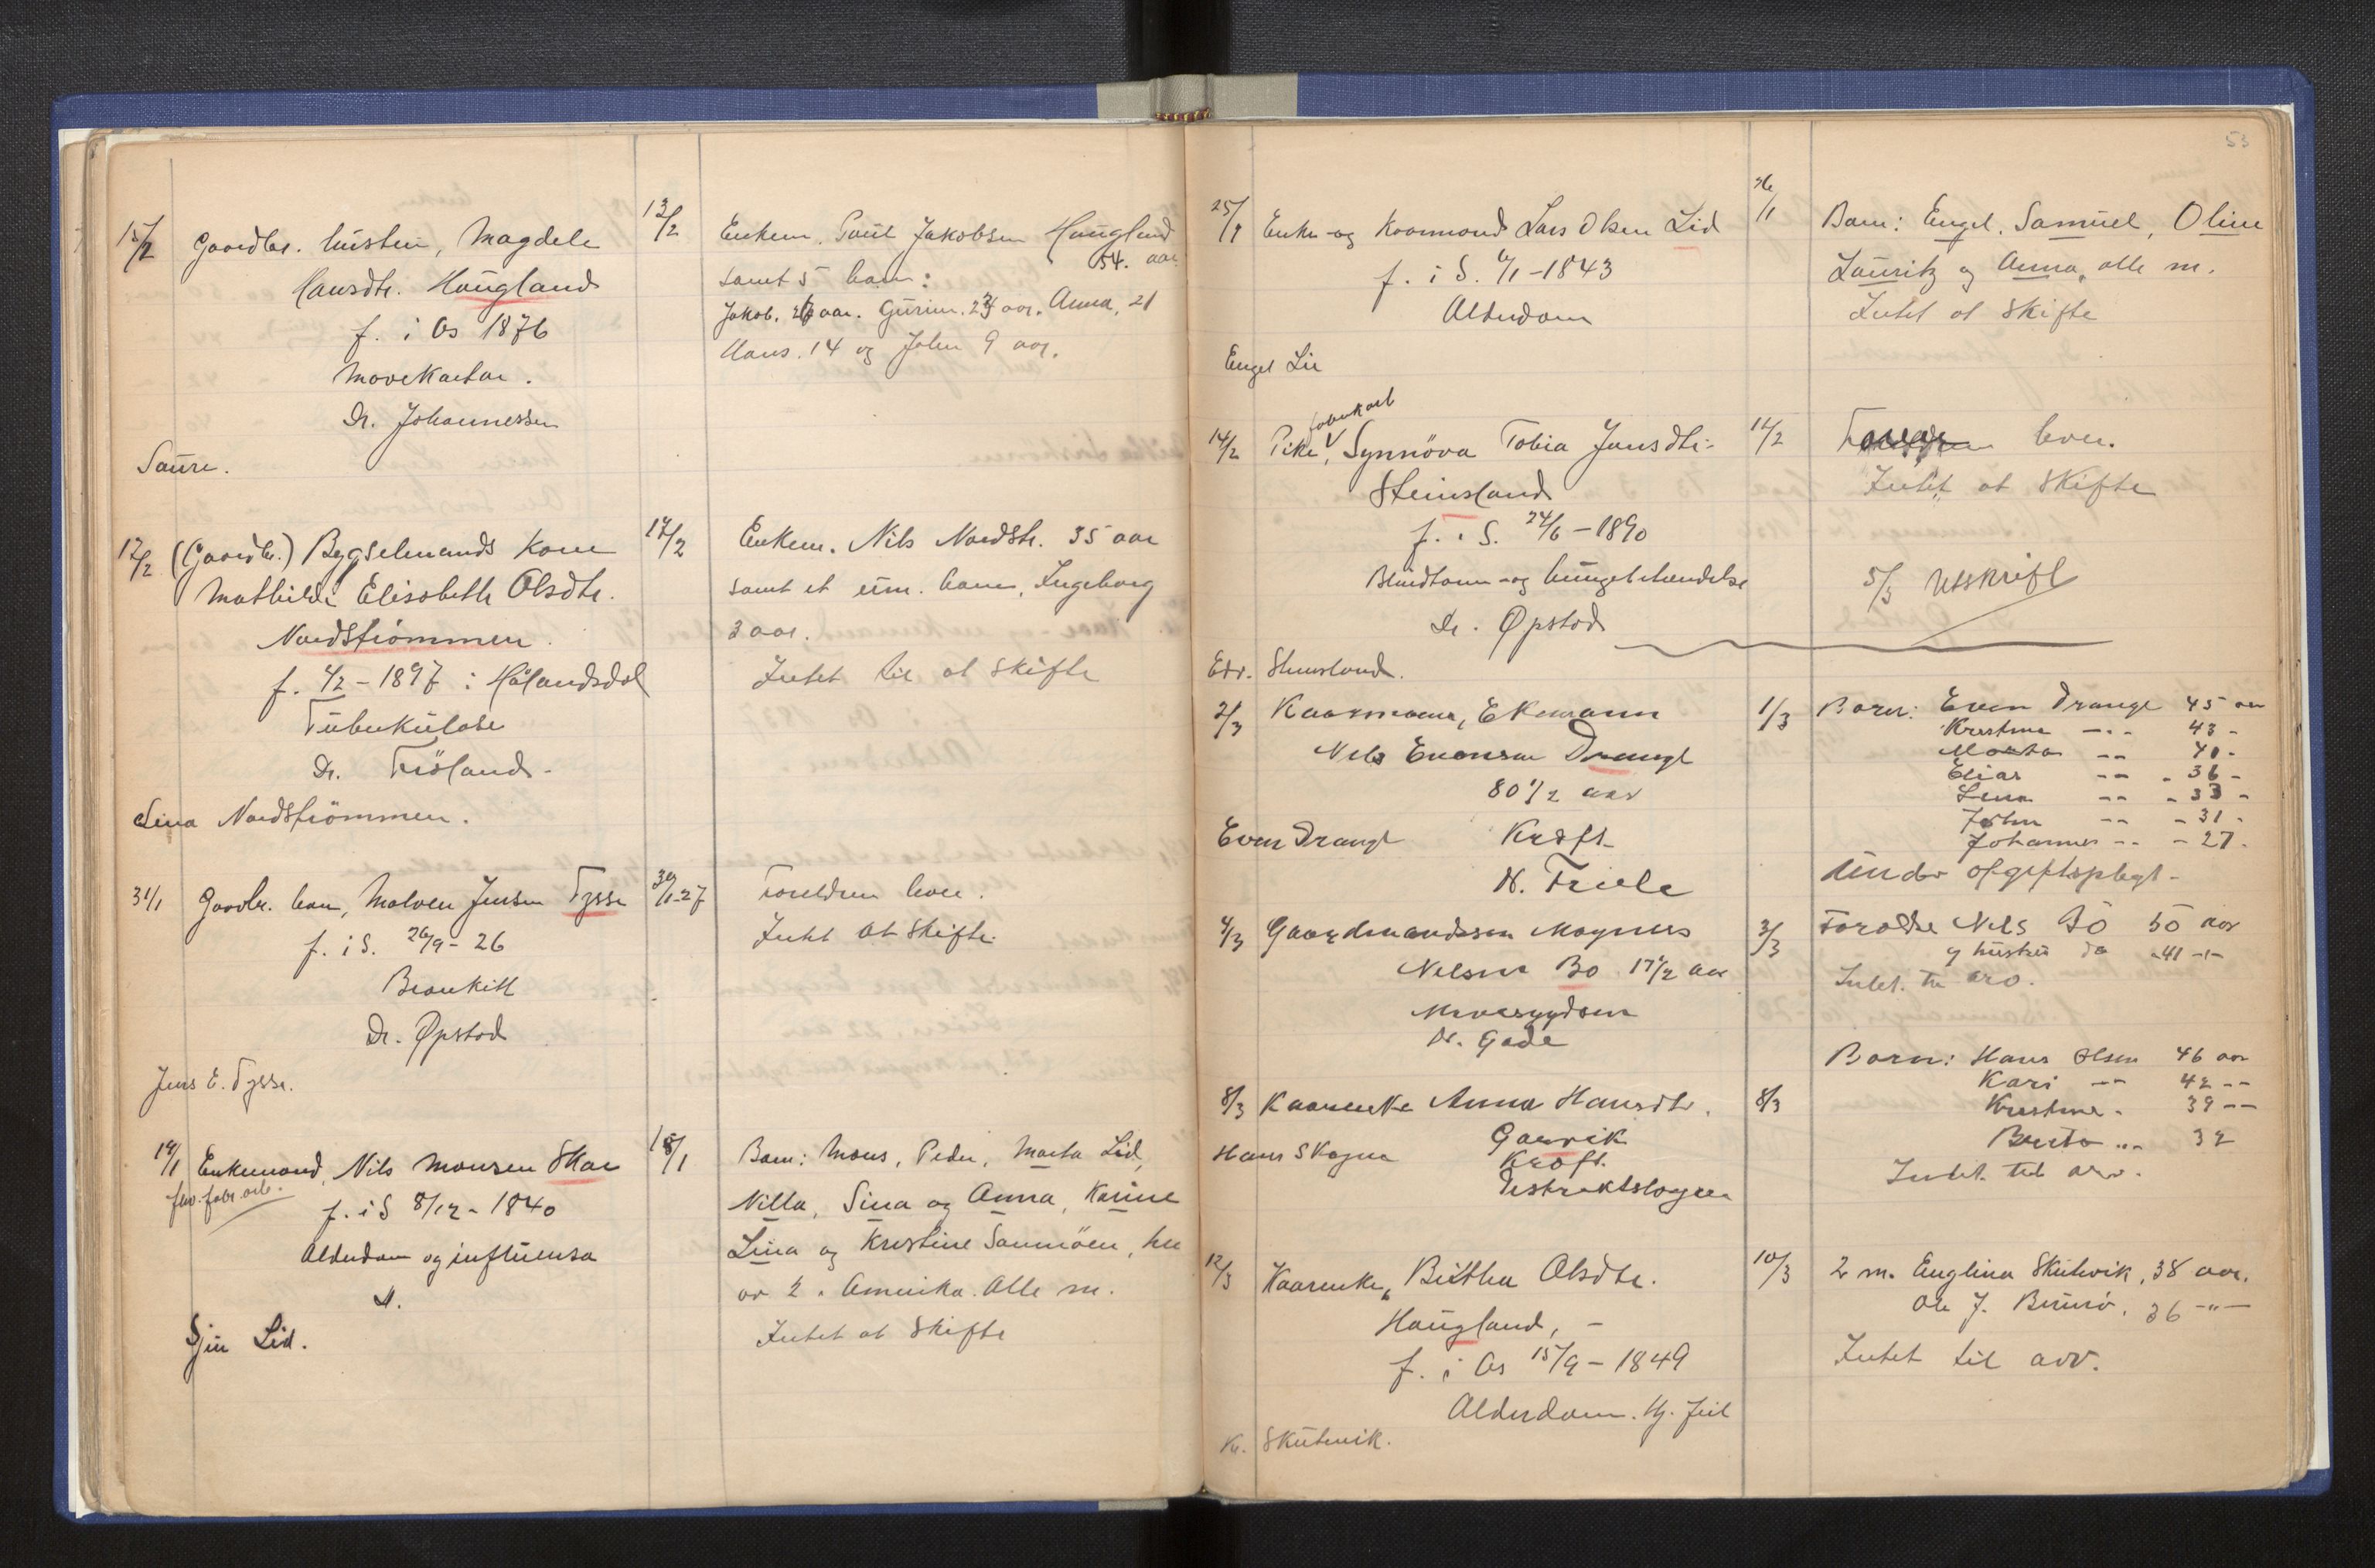 15/2 Gaardbr. hustru, Magdele
Hansdtr. Haugland
f. i Os 1876
Mavekæetar.
Dr. Johannessen
Saure.
13/2 Enkem. Paul Jakobsen Haugland
54. aar
samt 5 barn:
Jakob. 26 aar. Gurine. 23 aar. Anna, 21
Hans. 14 og John 9 aar.
12/2 (Gaardbr.) Bygselmands kone
Mathilde Elisabeth Olsdtr.
Nordstrømmen.
f. 4/2 - 1897 i Hålandsdal
Tuberkulose
Dr. Frøland.
Lina Nordstrømmen.
17/2 Enkem. Nils Nordstr. 35 aar
samt et um. barn, Ingeborg
3 aar.
Intet til at skifte
31/1 Gaardbr. barn, Malven Jensen Tysse
f. i S. 26/9 - 26
Bronkitt
Dr. Øpstad
Jens E. Tysse.
30/1-27 Foreldren lever.
Intet at skifte.
14/1 Enkemand, Nils Monsen Skar
fhv. fabr. arb.
f. i S 8/12 - 1840
Alderdom og influensa
Sjur Lid.
15/1 Barn: Mons, Peder, Marta Lid,
Nilla, Sina og Anna, Karine
Lina og Kristine Sannøen, her
av 2 i Amerika. Alle m.
Intet at skifte
53
25/1 Enke- og Kaarmand Lars Olsen Lid
f. i S. 6/1 - 1843
Alderdom
Engel Lie
26/1 Barn: Engel, Samuel, Oline
Lauritz og Anna, alle m.
Intet at skifte
fabrikarb
14/2 Pike, Synnöva Tobia Jansdtr.
Steinsland
f. i S. 24/6 - 1890
Blindtarm- og bughetendelse
Dr. Øpstad
Edv. Steinsland.
14/2 lever.
Intet at skifte
5/3 Utskrift
2/3 Kaarmann, Ekemann
Nels Evensen Drange
80 1/2 aar
Even Drange Kræft
N. Friele
1/3 Barn: Even Drange 45 aar
Kristine -"- 43 -
Marta -"- 41 -
Elias -"- 36 -
Lina -"- 33 -
John -"- 31 -
Johannes -"- 27 -
Under afgiftspligt -
4/3 Gaardmandssøn Magnus
Nelsen Bø 17 1/2 aar
Nervesygdom
Dr. Gade
3/3 Forældre Nels Bø 50 aar
og hustru do 41 -"-
Intet til arv.
8/3 Kaarenke Anna Hansdtr.
Gaasvik
Hans Skogen Kræft.
Distriktslægen
8/3 Barn: Hans Olsen 46 aar
Kari -"- 42 -"-
Kristine - 39 -"-
Berta -"- 32
Intet til arv.
12/3 Kaarenke, Britha Olsdtr.
Haugland, -
f. i Os 15/9 - 1849
Alderdom. Hj. feil
Kr. Skutevik.
10/3 2 m. Englina Skutevik, 38 aar.
Ole J. Bruarø, 36 -"-
Intet til arv.